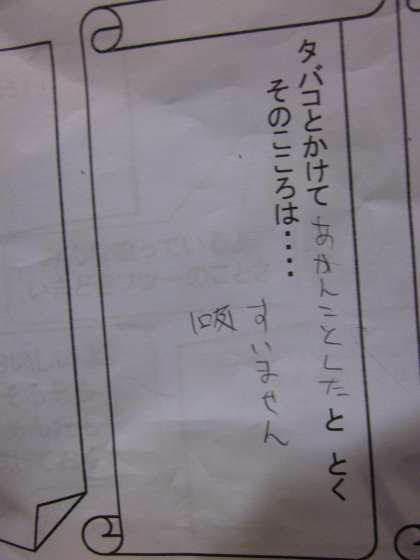 タバコとかけてあかんことしたと とく
そのこころは‥‥
すいません
吸